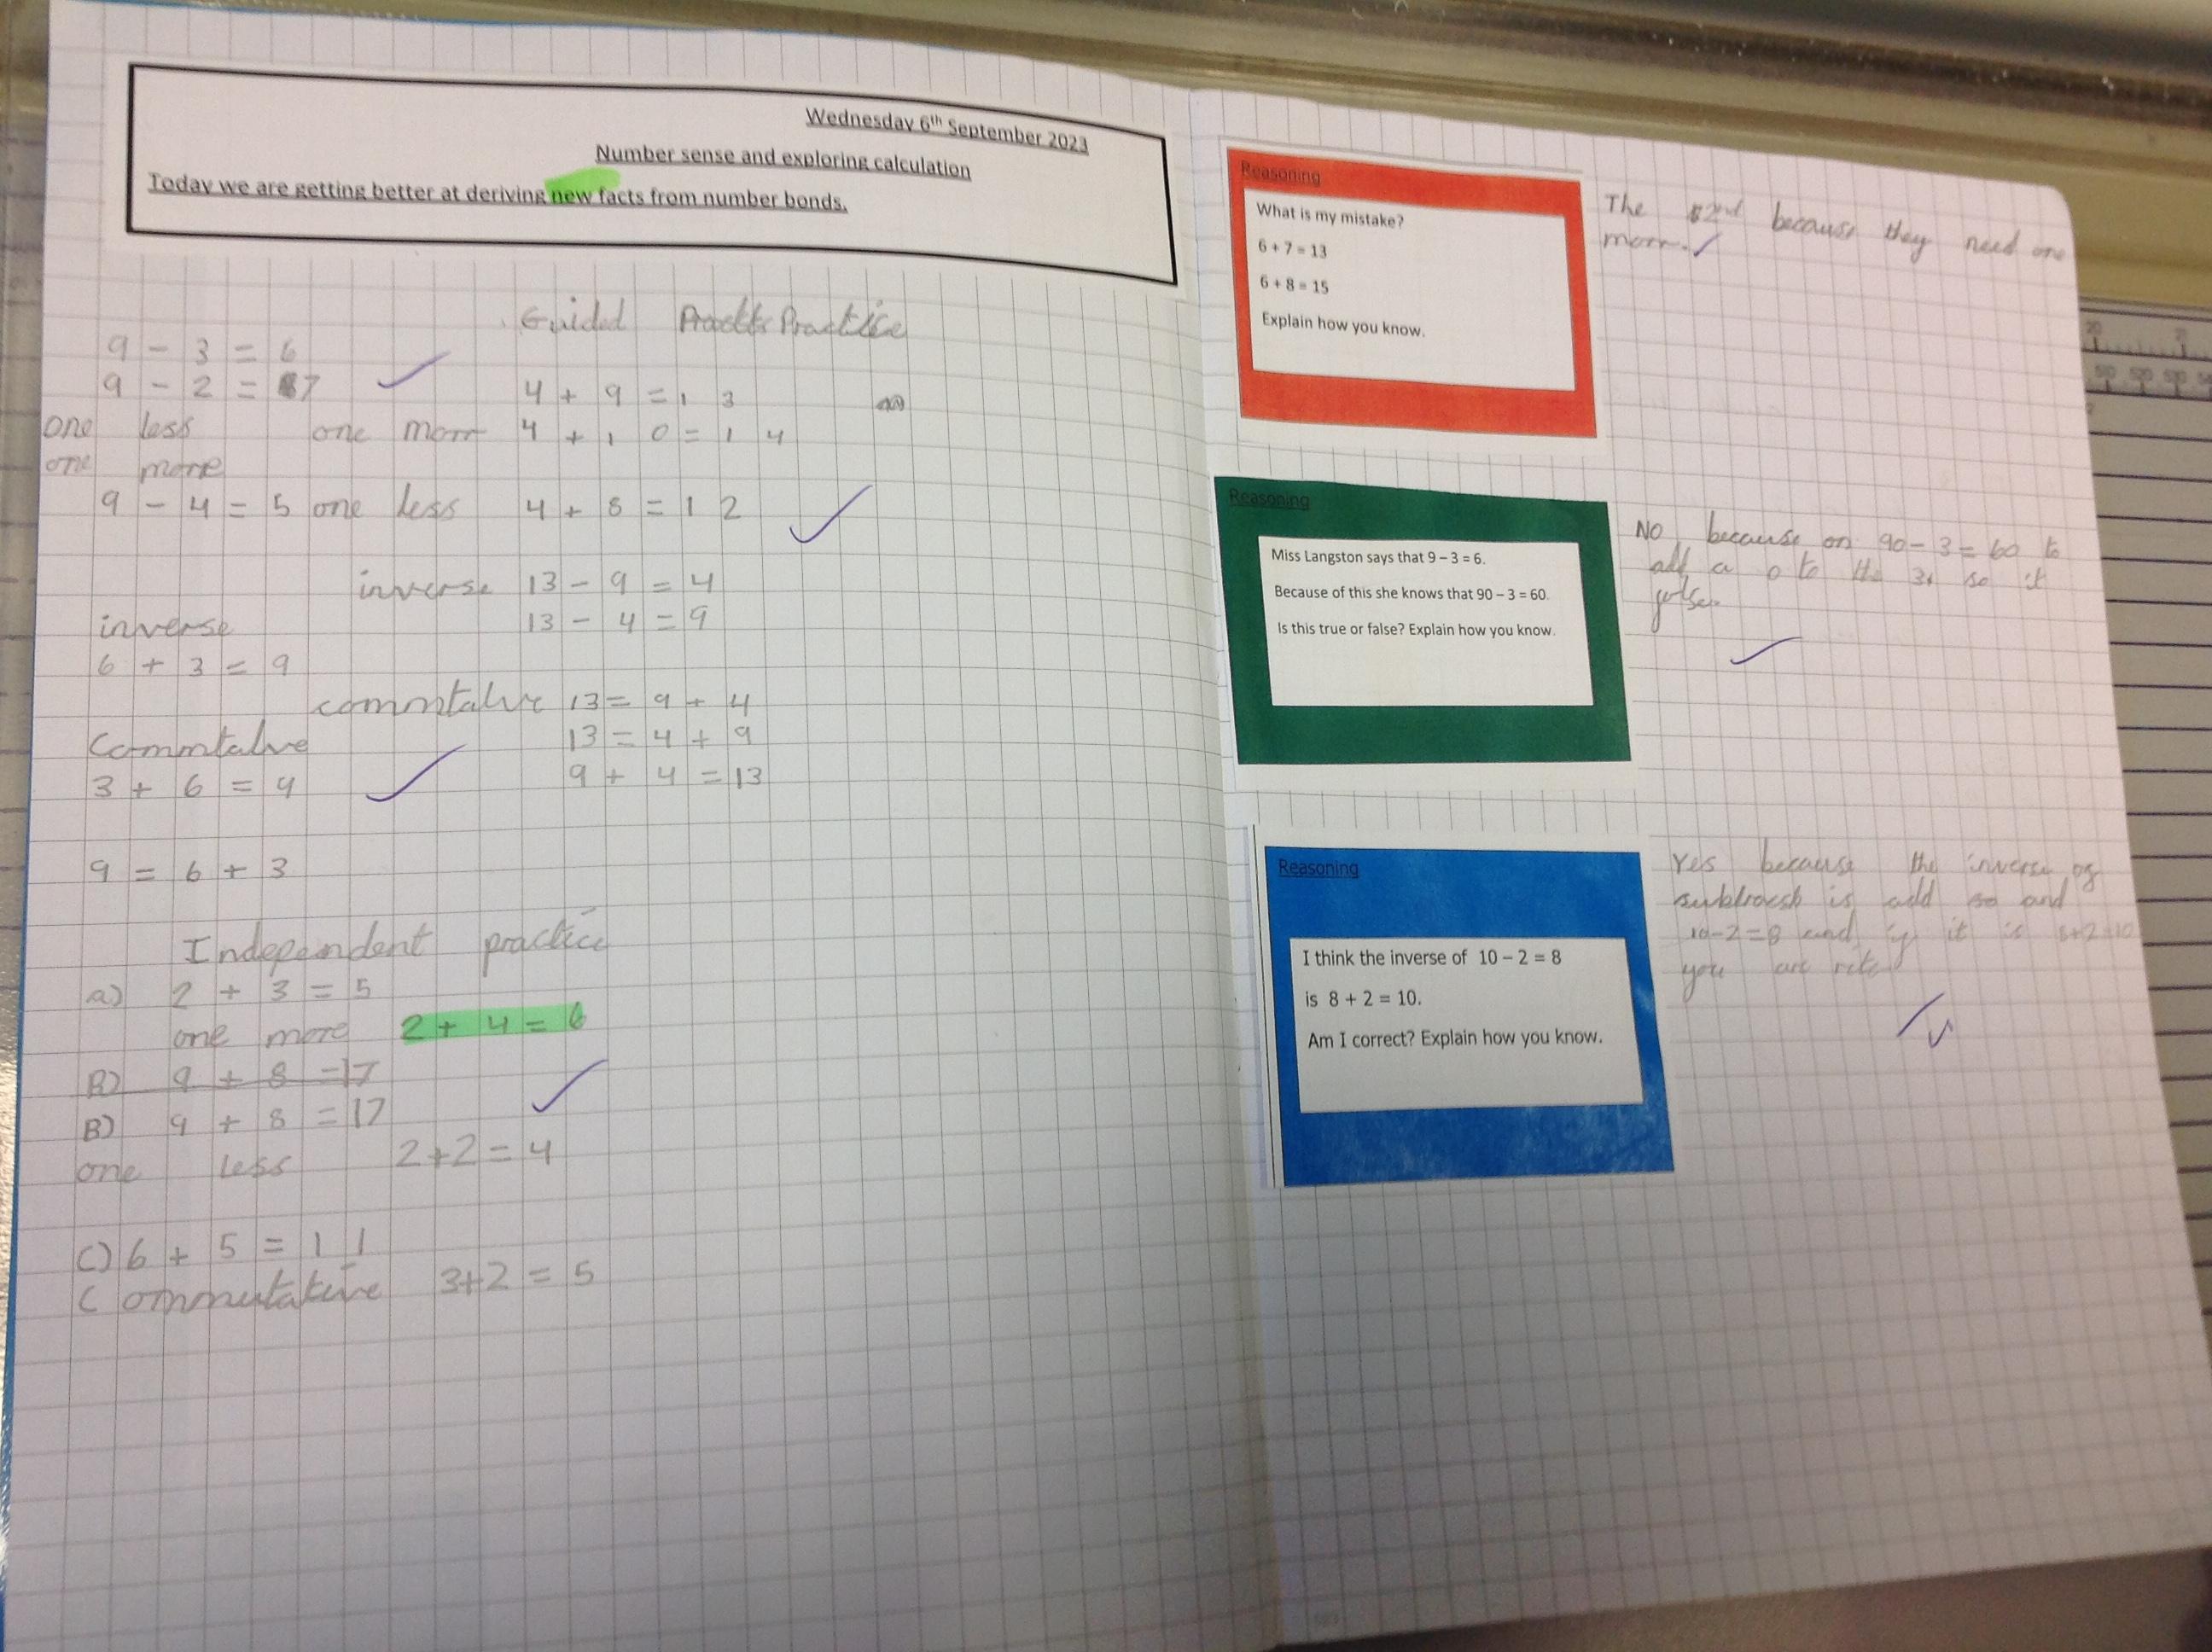 Wednesday 6th September 2023
Number sense and exploring calculation
Today we are getting better at deriving new facts from number bonds.
9 - 3 = 6
9 - 2 = 7
one less
one more
9 - 4 = 5
inverse
6 + 3 = 9
Commtalve
3 + 6 = 9
9 = 6 + 3
Guided Practice
4 + 9 = 13
one morr 4 + 10 = 14
one less 4 + 8 = 12
inverse 13 - 9 = 4
13 - 4 = 9
commtalve 13 = 9 + 4
13 = 4 + 9
9 + 4 = 13
Independent practice
a) 2 + 3 = 5
one more 2 + 4 = 6
B) 9 + 8 = 17
B) 9 + 8 = 17
one less 2+2 = 4
C) 6 + 5 = 11
Commutative 3+2 = 5
Reasoning
What is my mistake?
6 + 7 = 13
6 + 8 = 15
Explain how you know.
The 2nd because they need one
morr.
Reasoning
Miss Langston says that 9 – 3 = 6.
Because of this she knows that 90 – 3 = 60.
Is this true or false? Explain how you know.
No because on 90 - 3 = 60 to
add a 0 to the 3 so it
Reasoning
I think the inverse of 10 – 2 = 8
is 8 + 2 = 10.
Am I correct? Explain how you know.
Yes because the inverse of
is add so and
10-2=8 and if it is 8+2=10
you are rite